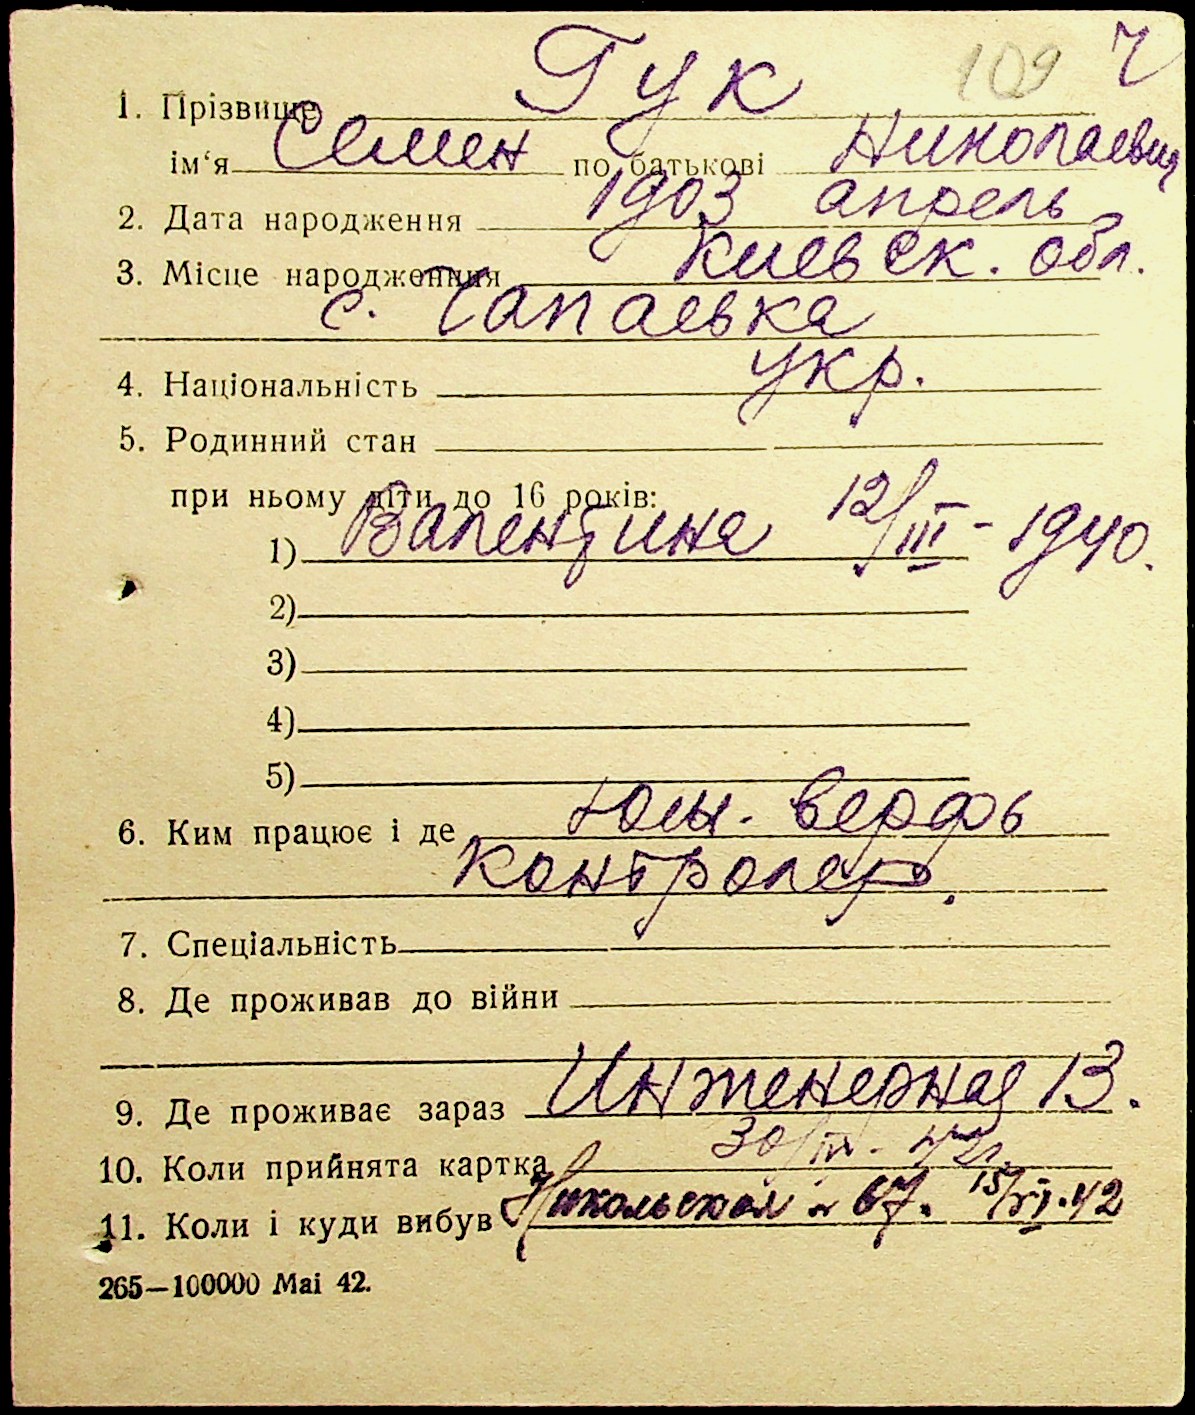 109 Ч
1. Прізвище Гук
ім‘я Семен по батькові Николаевич
2. Дата народження 1903 апрель
3. Місце народження Киевск. обл.
с. Чапаевка
4. Національність укр.
5. Родинний стан
при ньому діти до 16 років:
1) Валентина 12/III - 1940.
2)
3)
4)
5)
6. Ким працює і де Южн. верфь
контролер.
7. Спеціальність
8. Де проживав до війни
9. Де проживає зараз Инженерная 13.
10. Коли прийнята картка 42г.
11. Коли і куди вибув Никольская № 67. 15/VI.42
265—100000 Mai 42.